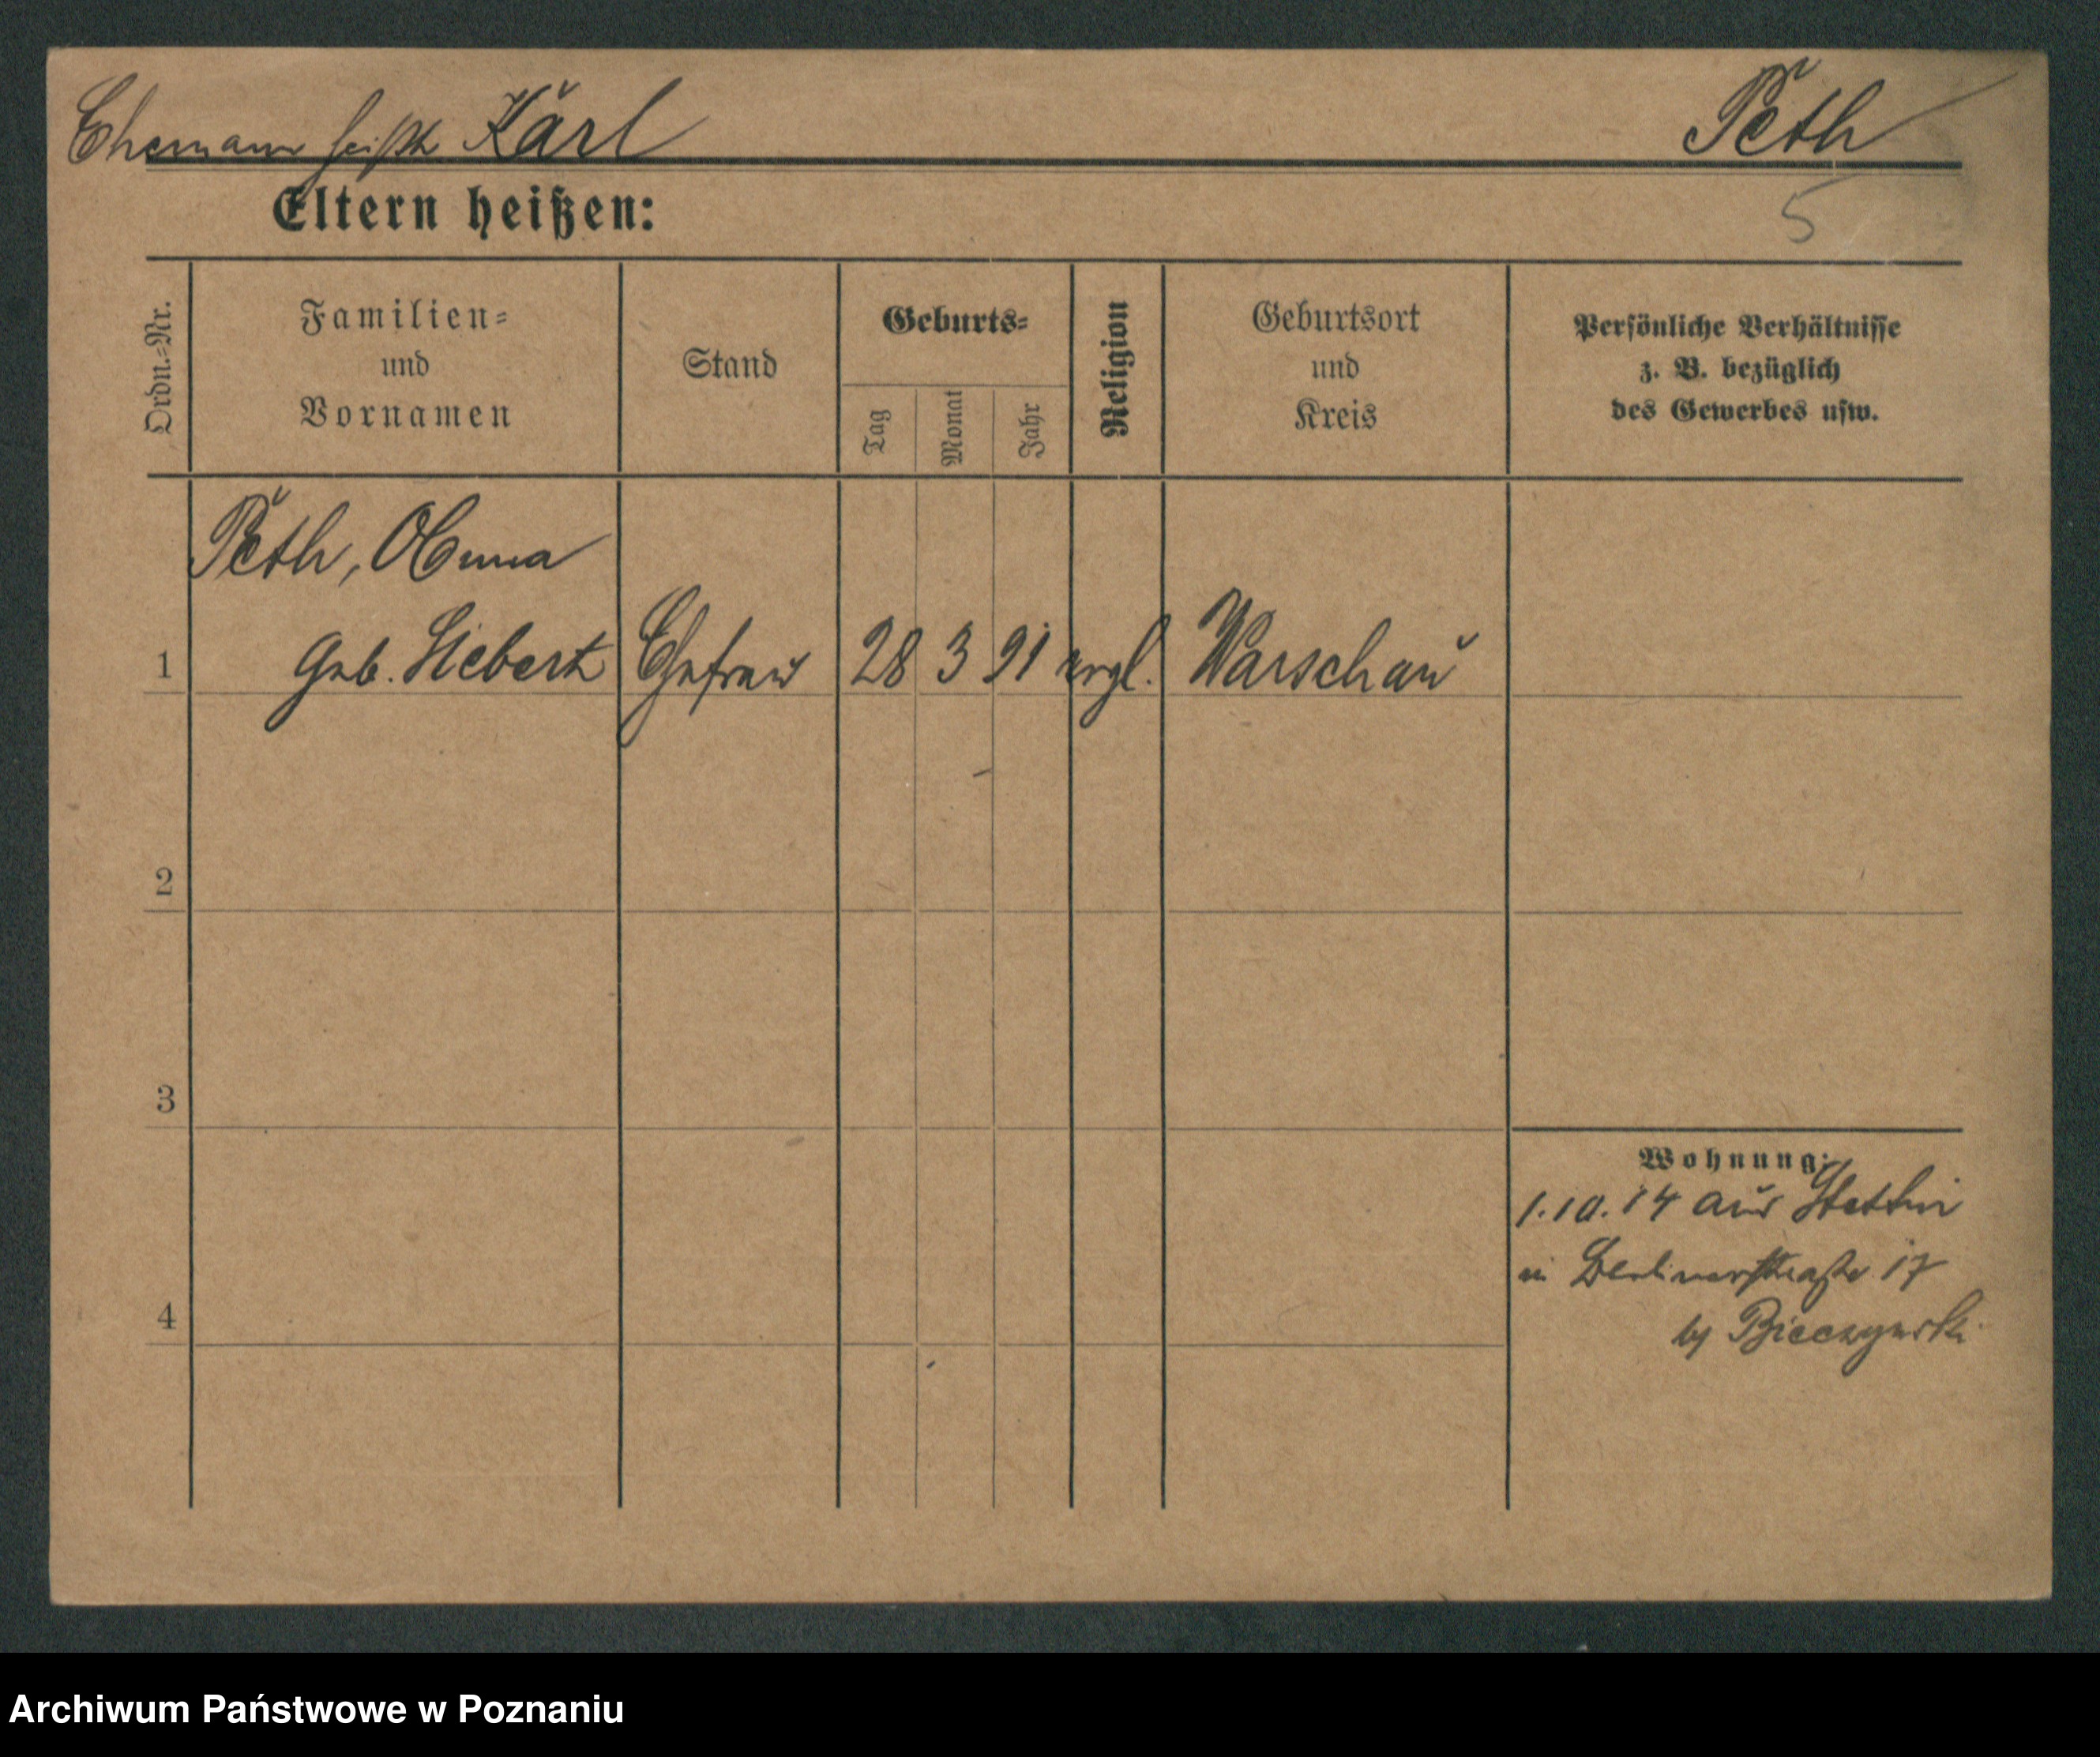 Ehemann heißt Karl
Peth
Eltern heißen:
5
Ordn.=Nr.
Familien=
und
Vornamen
Stand
Geburts=
Tag
Monat
Jahr
Religion
Geburtsort
und
Kreis
Persönliche Verhältnisse
z. B. bezüglich
des Gewerbes usw.
Peth,
1 geb. Siebert Ehefrau 28 3 91 evgl. Warschau
2
3
4
Wohnung:
1.10.14 aus Stettin
in Berlinerstraße 17
by
Archiwum Państwowe w Poznaniu